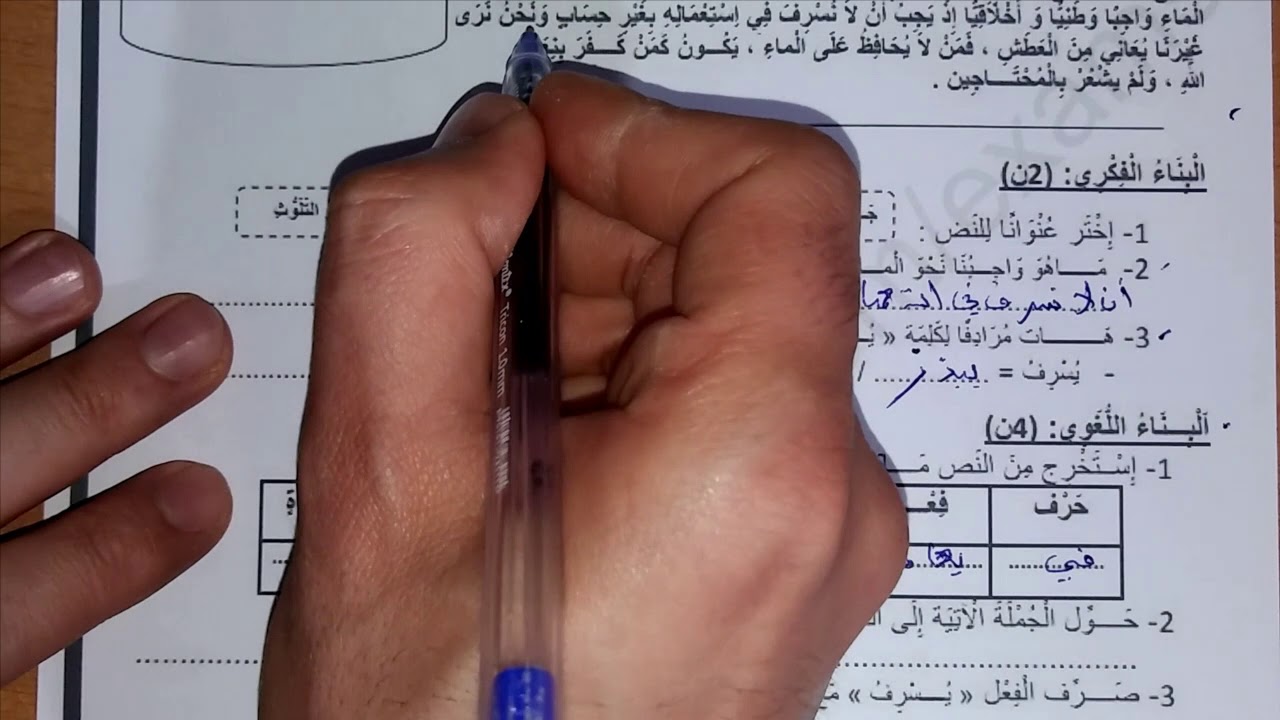 الْمَاءِ وَاجِبًا وَطَنِيًّا وَ أَخْلَاقِيًّا إِذْ يَجِبُ أَنْ لَا نُسْرِفَ فِي اِسْتِعْمَالِهِ بِغَيْرِ حِسَابٍ وَنَحْنُ نَرَى
غَيْرَنَا يُعَانِي مِنَ الْعَطَشِ ، فَمَنْ لاَ يُحَافِظُ عَلَى الْماءِ ، يَكُـونُ كَمَنْ كَـفَرَ
اللهِ ، وَلَمْ يَشْعُرْ بِالْمُحْتَـاجِين .
الْبِنَاءُ الْفِكْرِي: (2ن)
1- إِخْتَر عُنْوَانًا لِلنَص :
التَلَوُثِ
2- مَـاهُوَ وَاجِـبُنَا نَحْوَ
أن لا نسرف في
3- هَـاتَ مُرَادِفًا لِكَلِمَة «
- يُسْرِفُ = يبذر /
اَلْبِـنَاءُ اللُّغَوِي: (4ن)
1- إِسْتَخْرِج مِنَ النَص
حَرْف
في
2- حَـوِّل الْجُمْلَةَ الْآتِيَة إِلَى
3- صَـرِّف الْفِعْل « يُـسْرِفُ »